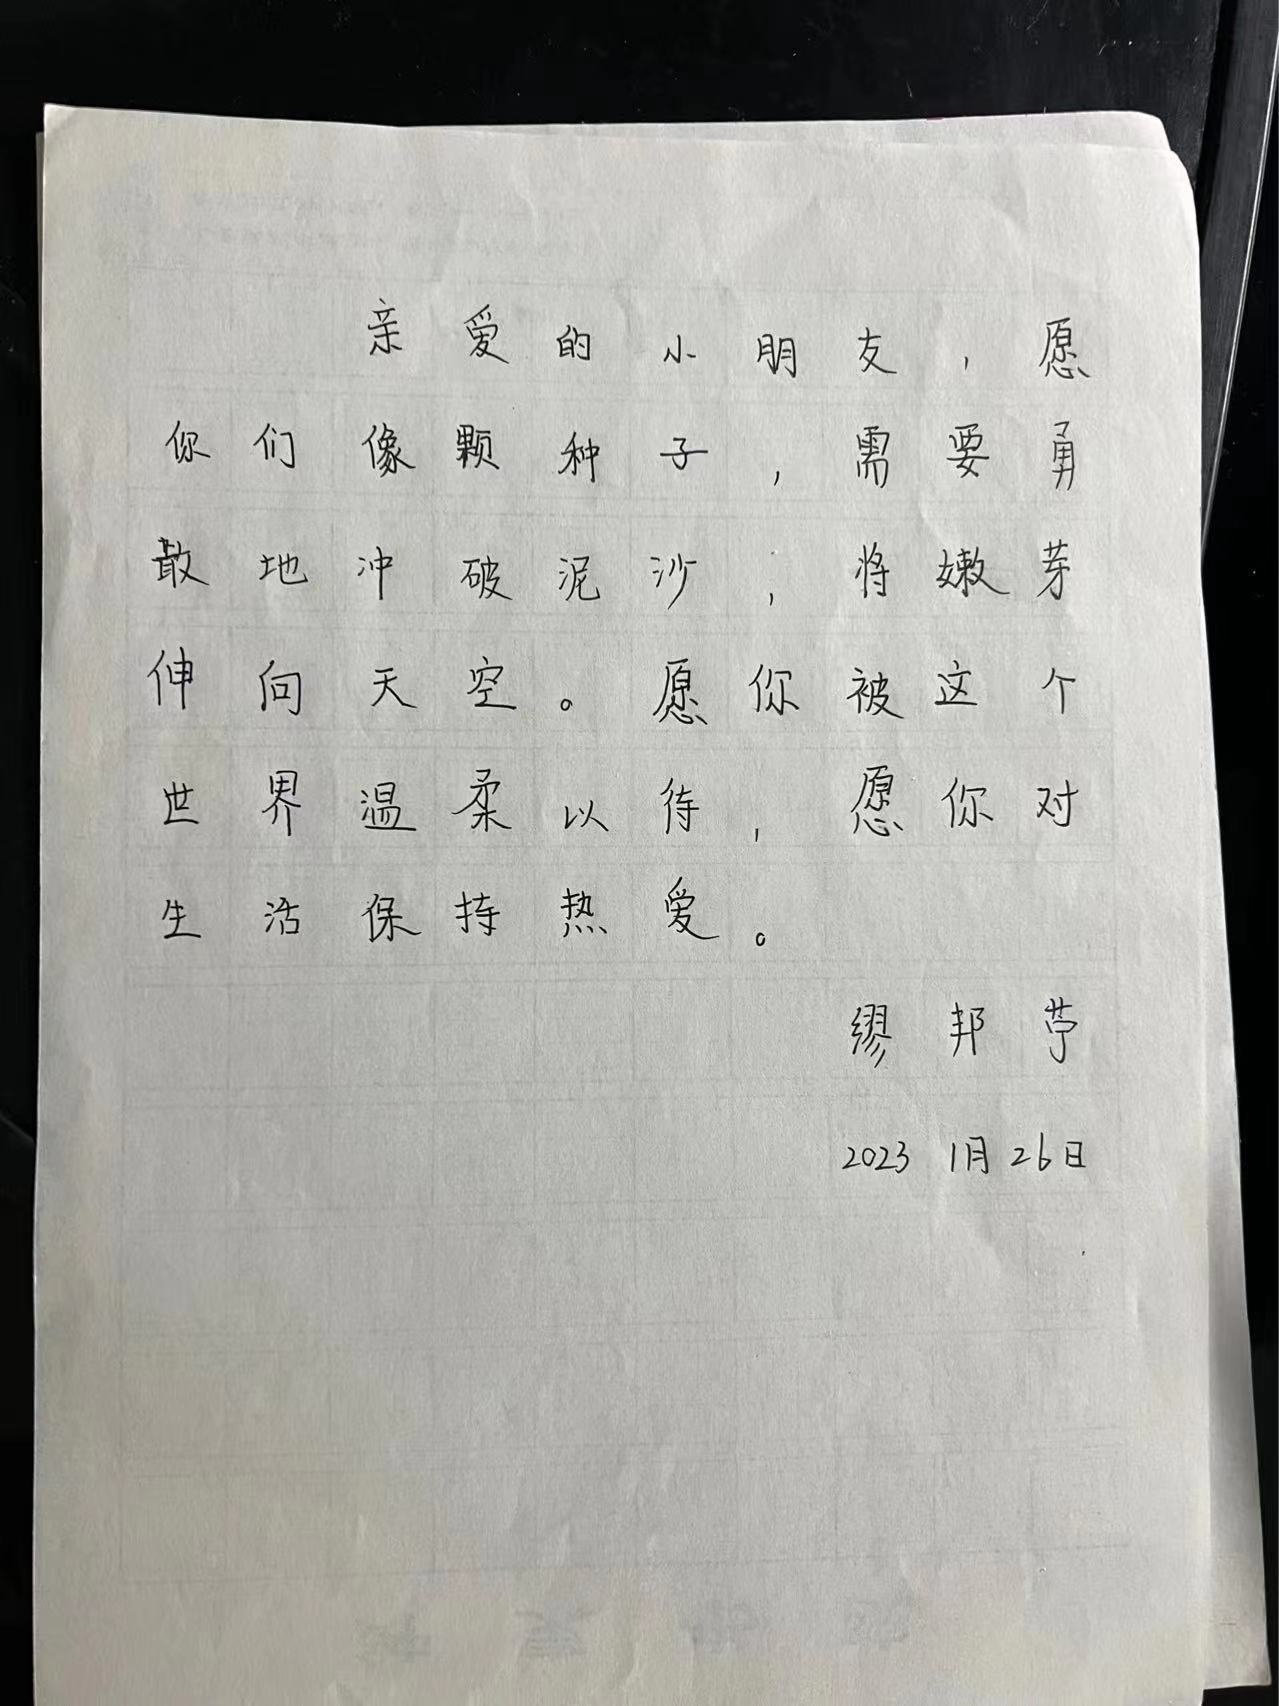 亲爱的小朋友，愿
你们像颗种子，需要勇
敢地冲破泥沙，将嫩芽
伸向天空。愿你被这个
世界温柔以待，愿你对
生活保持热爱。
缪邦苧
2023 1月26日